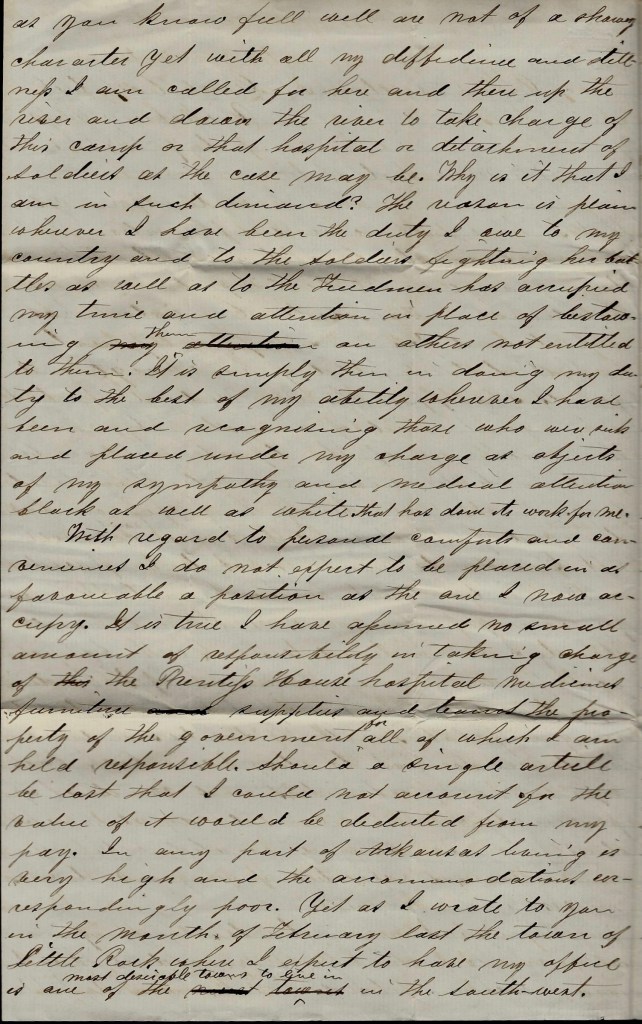 as you know full well are not of a showy
character yet with all my diffidence and still-
ness I am called for here and there up the
river and down the river to take charge of
this camp or that hospital or detachment of
soldiers as the case may be. Why is it that I
am in such demand? The reason is plain
wherever I have been the duty I owe to my
country and to the soldiers fighting her bat
tles as well as to the Freedmen has occupied
my time and attention in place of bestow-
ing my them attention on others not entitled
to them. It is simply then in doing my du-
ty to the best of my ability wherever I have
been and recognising those who were sick
and placed under my charge as objects
of my sympathy and medical attention
black as well as white that has done its work for me.
With regard to personal comforts and con-
veniences I do not expect to be placed in as
favourable a position as the one I now oc-
cupy. It is true I have assumed no small
amount of responsibility in taking charge
of this the Prentiss House hospital medicines
furniture and supplies and teams the pro-
perty of the government for all of which I am
held responsible. Should a single article
be lost that I could not account for the
value of it would be deducted from my
pay. In any part of Arkansas living is
very high and the accommodations cor-
respondingly poor. Yet as I wrote to you
in the month of February last the town of
Little Rock where I expect to have my office
most desirable towns to live in
is one of the most towns in the south-west.